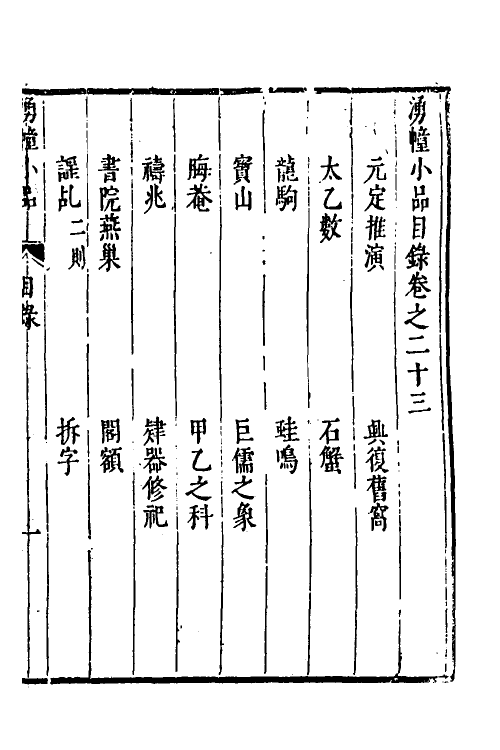 湧幢小品目錄卷之二十三
元定推演 興復舊窩
太乙數 石蟹
龍駒 蛙鳴
寶山 巨儒之象
晦菴 甲乙之科
禱兆 肄器修祀
書院燕巢 閣額
謡乩二則 拆字
湧幢小品 目錄 一